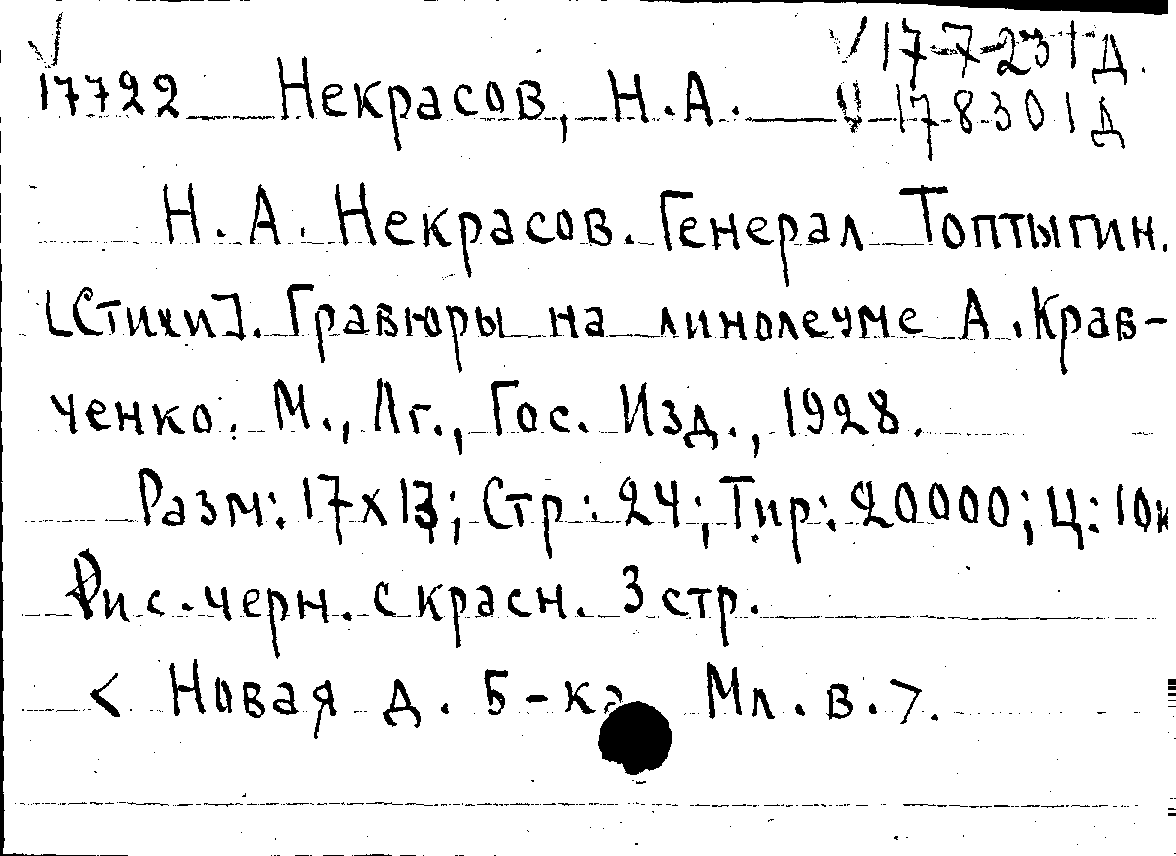 √ 17-7-23 1 Д.
17722 Некрасов, Н.А. 17-8-30 1 Д
Н. А. Некрасов. Генерал Топтыгин.
[Стихи]. Гравюры на линолеуме А. Крав-
ченко. М., Лг., Гос. Изд., 1928.
Разм: 17х13; Стр: 24; Тир: 20000; Ц: 10к
Рис. черн. с красн. 3 стр.
< Новая д. Б-ка Мл. в. >.